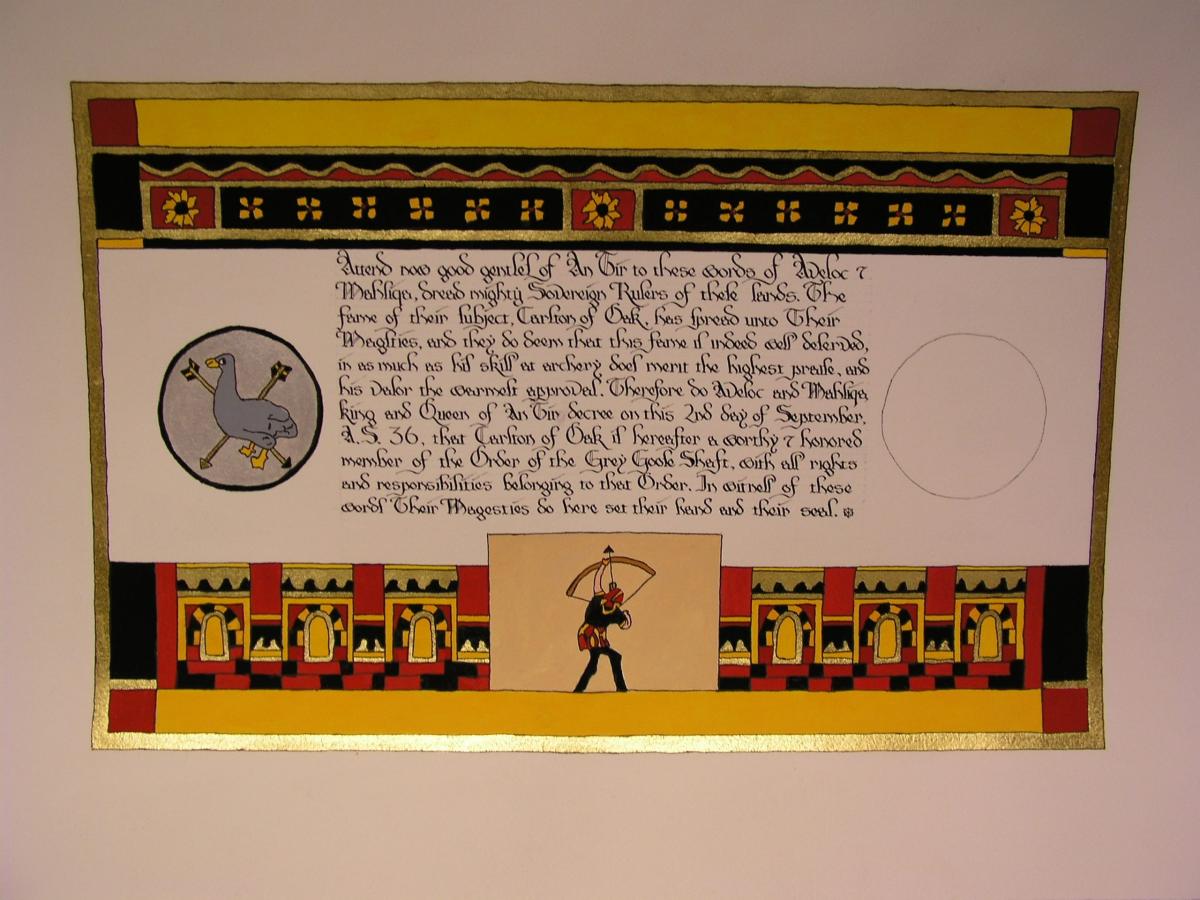 Attend now good gentles of An Tir to these words of Aveloc ⁊
Mahliqa, dread mighty Sovereign Rulers of these lands. The
fame of their subject, Carlton of Oak, has spread unto Their
Magesties, and they do deem that this fame is indeed well deserved,
in as much as his skill at archery does merit the highest praise, and
his valor the warmest approval. Therefore do Aveloc and Mahliqa,
King and Queen of An Tir decree on this 2nd day of September,
A.S. 36, that Carlton of Oak is hereafter a worthy ⁊ honored
member of the Order of the Grey Goose Shaft, with all rights
and responsibilities belonging to that Order. In witness of these
words Their Magesties do here set their hand and their seal.